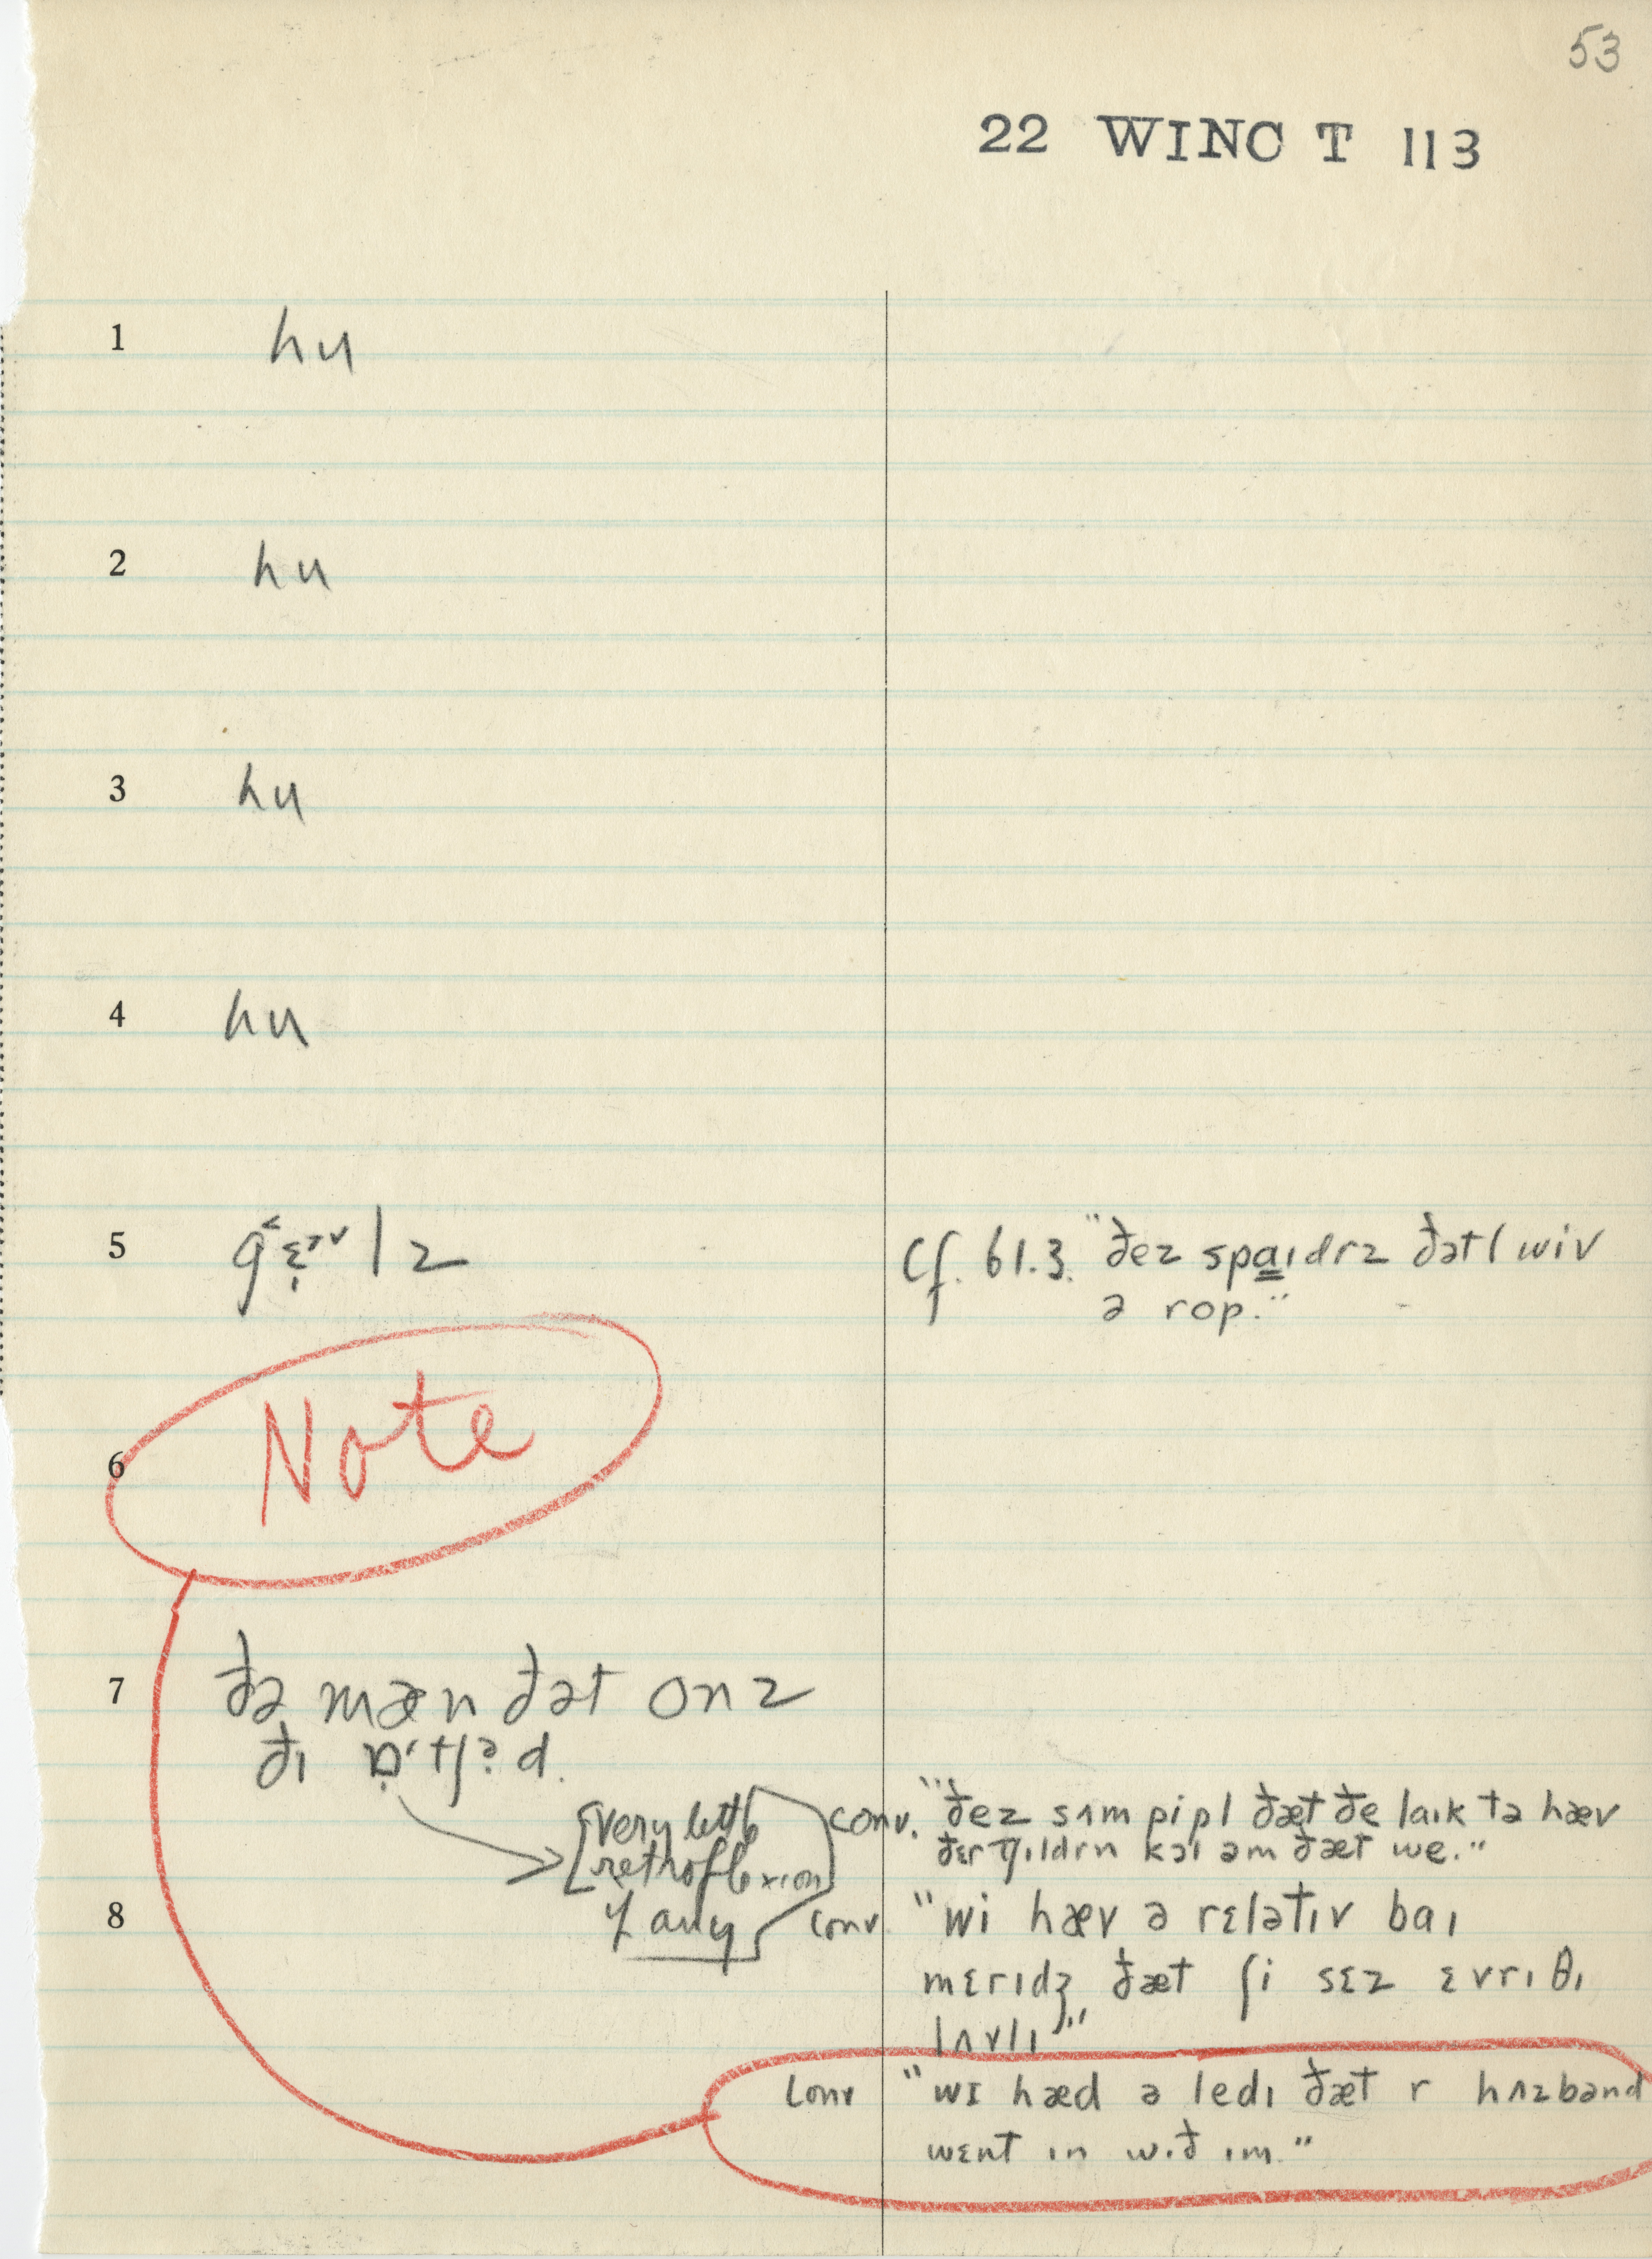 53
22 WINC T 113
1 hu
2 hu
3 hu
4 hu
5 lz Cf. 61.3. "ðez spaɪdrz ðətl wiv
ə rop."
Note
6
7 ðə mæn ðət onz
ðɪ
[very little conv. "ðez sʌm pipl ðæt ðe laɪk tə hæv
retroflexion ðɛr tʃɪldrn kɔl əm ðæt we."
8 if any conv. "wi hæv ə rɛlətɪv baɪ
mɛrɪdʒ ðæt ʃi sɛz ɛvrɪθɪ
lʌvlɪ"
conv "wɪ hæd ə ledɪ ðæt r hʌzbənd
wɛnt ɪn wɪð ɪm."